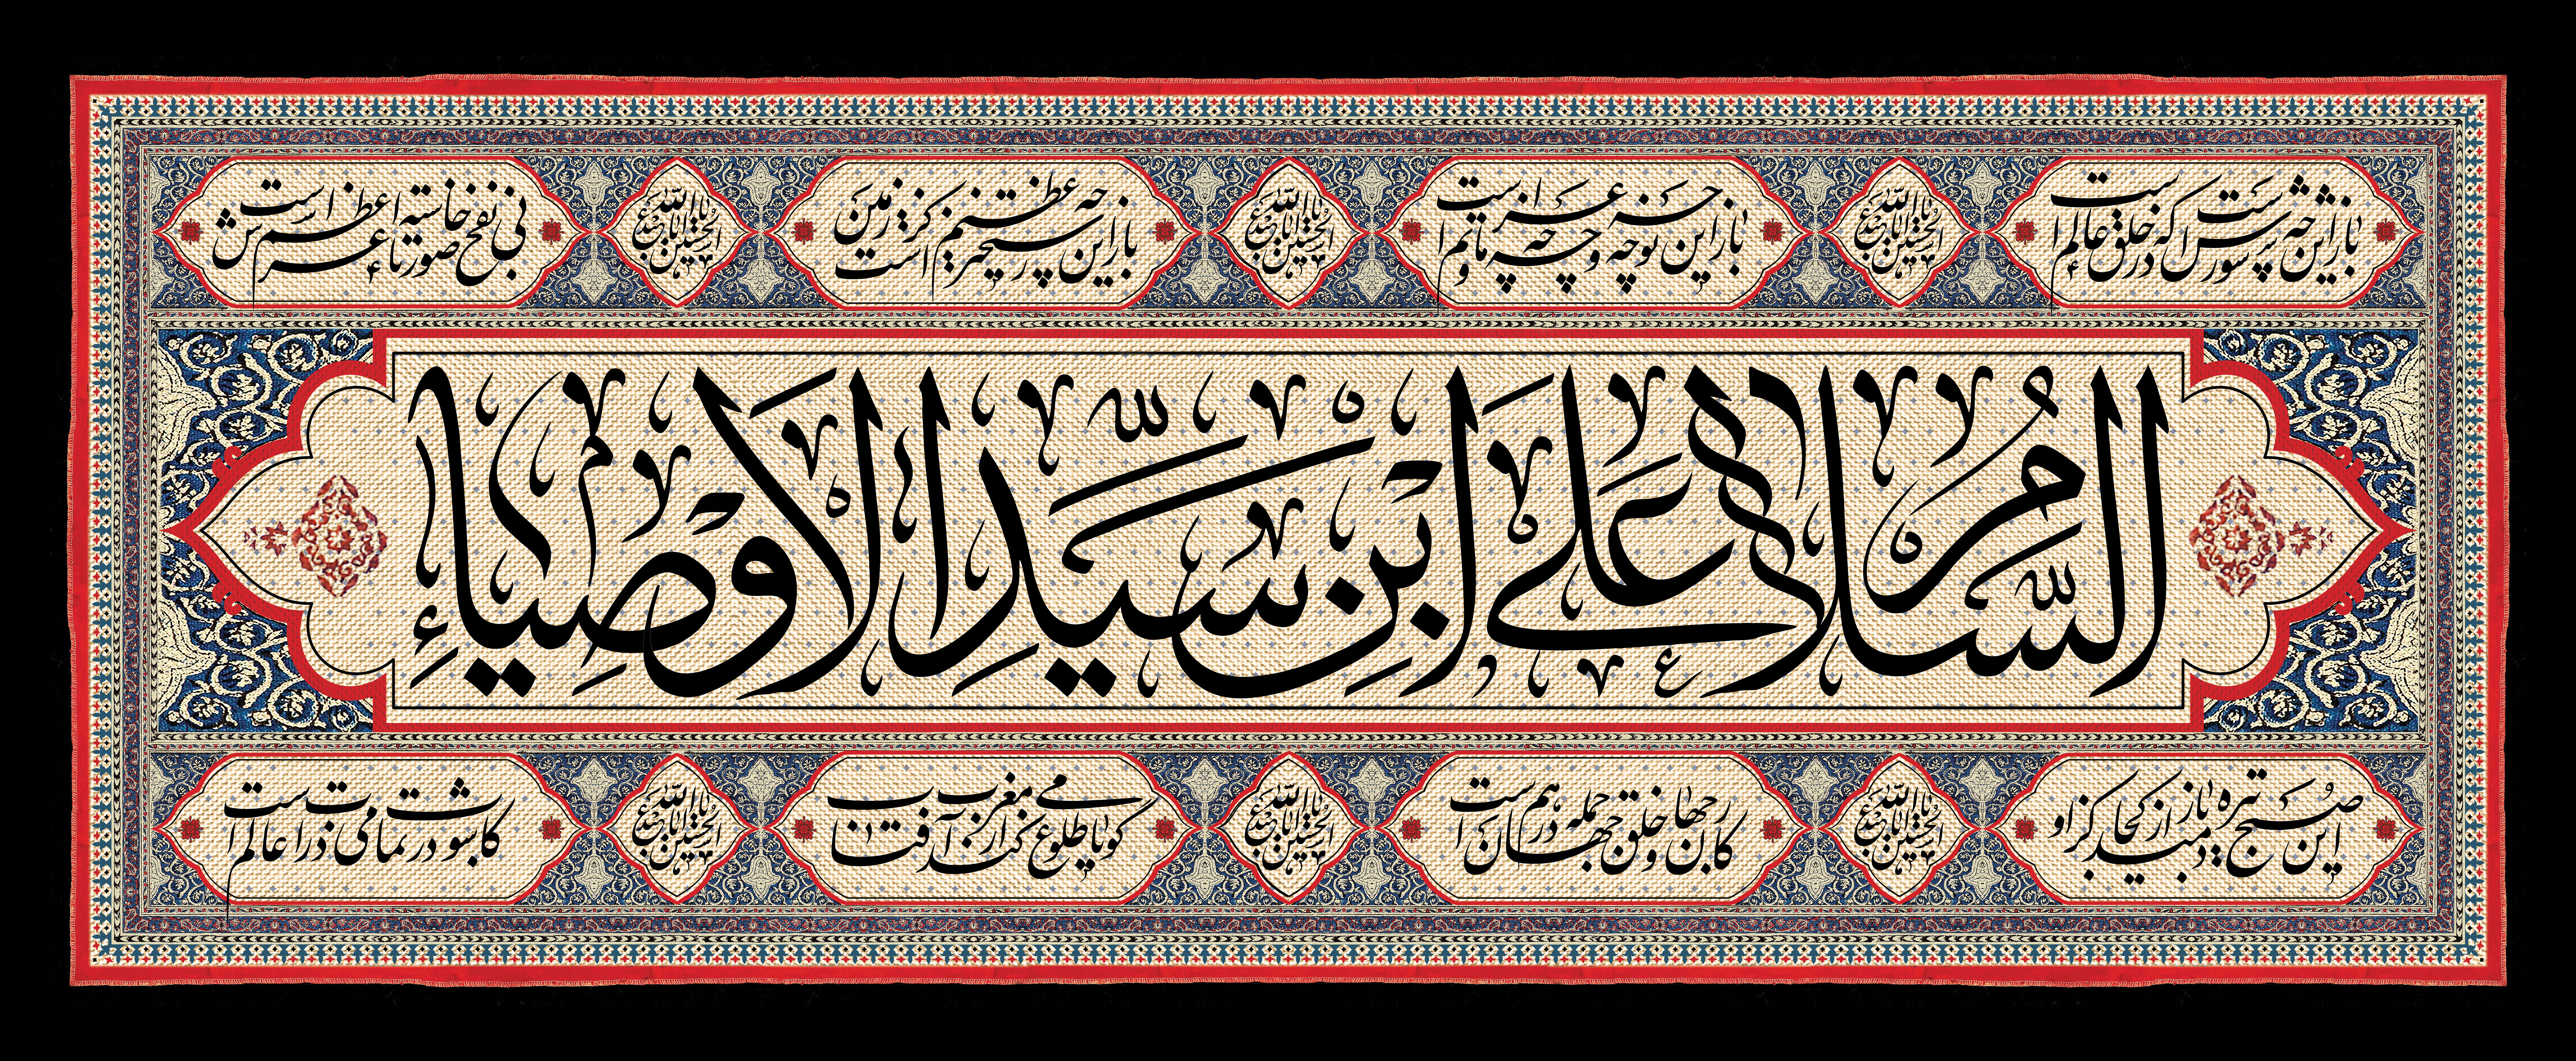 باز این چه شورش است که در خلق عالم است
یا اباعبدالله الحسین
باز این چه نوحه و چه عزا و چه ماتم است
یا اباعبدالله الحسین
باز این چه رستخیز عظیم است کز زمین
یا اباعبدالله الحسین
بی نفخ صور خاسته تا عرش اعظم است
السَّلامُ عَلَی ابْنِ سَیِّدِ الاَوْصِیاءِ
این صبح تیره باز دمید از کجا کزو
یا اباعبدالله الحسین
کار جهان و خلق جهان جمله درهم است
یا اباعبدالله الحسین
گویا طلوع می کند از مغرب آفتاب
یا اباعبدالله الحسین
کاشوب در تمامی ذرات عالم است